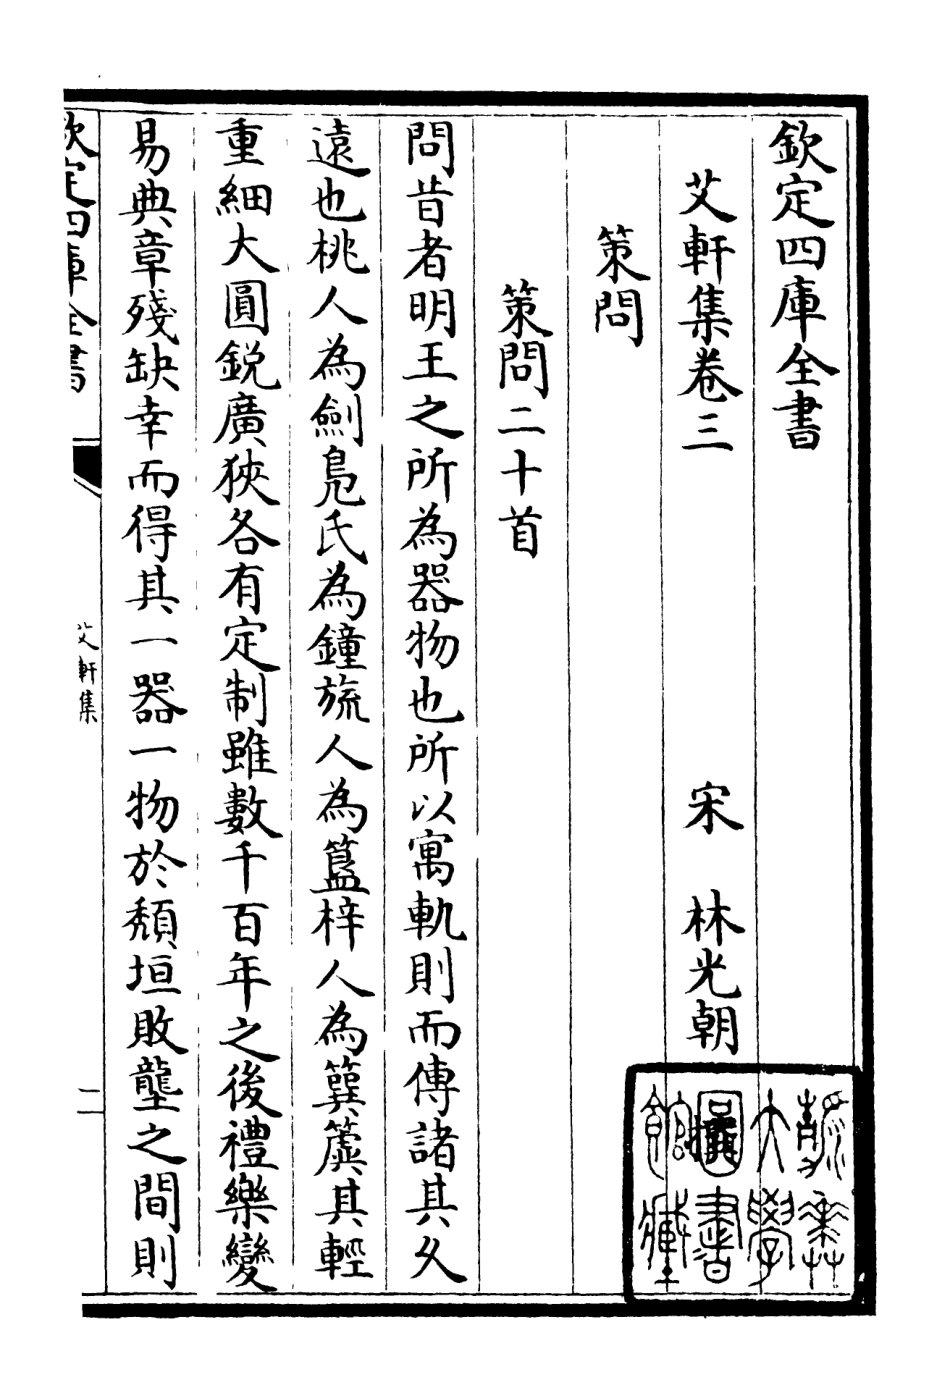 欽定四庫全書
艾軒集卷三
宋 林光朝
策問
策問二十首
問昔者明王之所為器物也所以寓軌則而傳諸其久
遠也桃人為劍鳧氏為鐘旊人為簋梓人為簨簴其輕
重細大圓銳廣狹各有定制雖數千百年之後禮樂變
易典章殘缺幸而得其一器一物於頹垣敗壟之間則
欽定四庫全書
艾軒集
一
大學
圖書
館藏